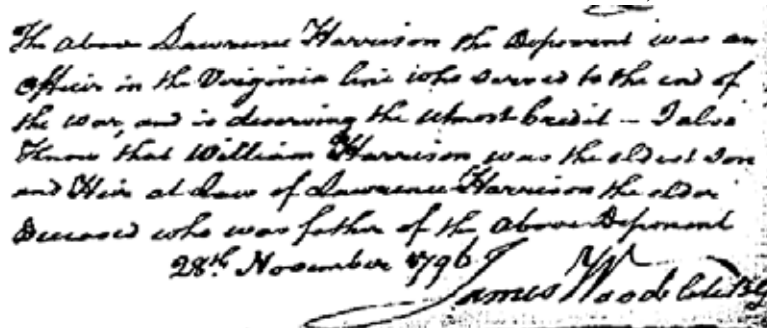 The above Lawrence Harrison the Deponent was an
officer in the Virginia line who served to the end of
the war, and is deserving the utmost Credit – I also
Know that William Harrison was the eldest Son
and Heir at Law of Lawrence Harrison the elder
Deceased who was father of the above Deponent
28th November 1796
James Wood